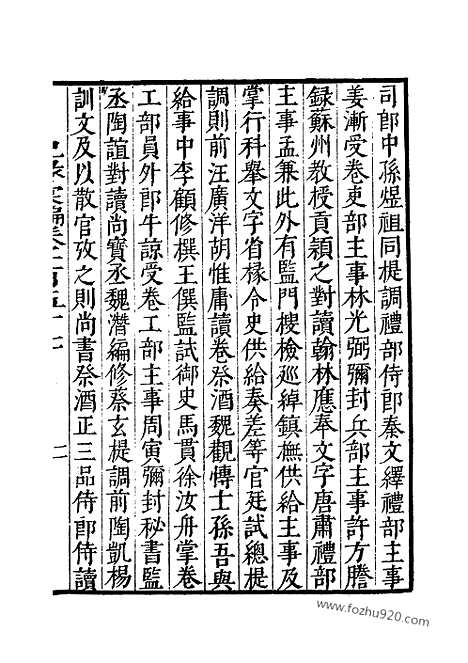 司郎中孫煜祖同提調禮部侍郎秦文繹禮部主事
姜漸受卷吏部主事林光弼彌封兵部主事許方謄
録蘇州教授貢潁之對讀翰林應奉文字唐肅禮部
主事孟兼此外有監門搜檢巡綽鎮撫供給主事及
掌行科舉文字省掾令史供給奏差等官廷試總提
調則前汪廣洋胡惟庸讀卷祭酒魏觀博士孫吾與
給事中李顧修撰王僎監試御史馬貫徐汝舟掌卷
工部員外郎牛諒受卷工部主事周寅彌封秘書監
丞陶誼對讀尚寶丞魏潛編修蔡玄提調前陶凱楊
訓文及以散官攷之則尚書祭酒正三品侍郎侍讀
二
www.fozhu920.com